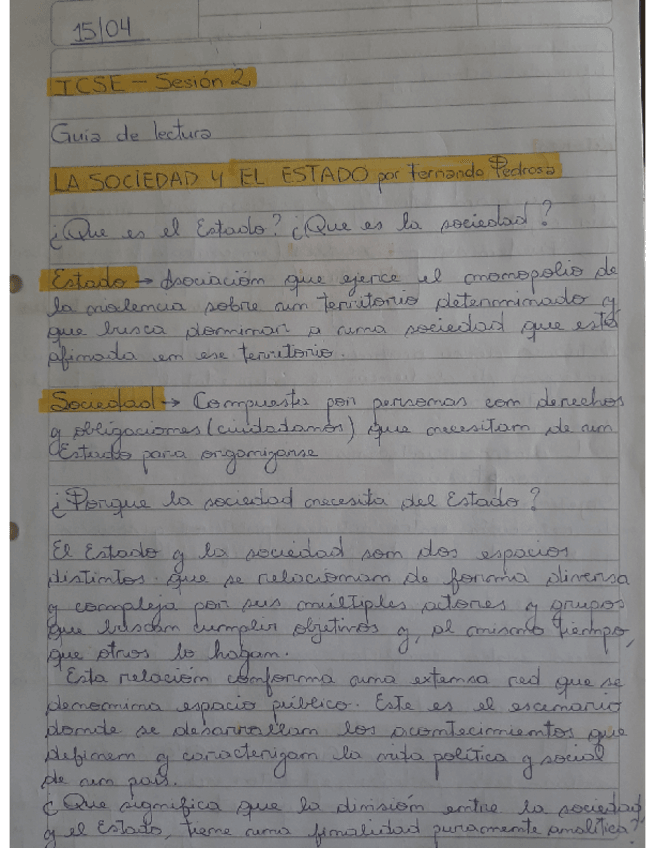 15/04
ICSE - Sesión 2
Guia de lectura
LA SOCIEDAD Y EL ESTADO por Fernando Pedrosa
¿Que es el Estado? ¿Que es la sociedad?
Estado → Asociación que ejerce el monopolio de
la violencia sobre un territorio determinado y
que busca dominar a una sociedad que está
afimada en ese territorio.
Sociedad → Compuesta por personas con derechos
y obligaciones (ciudadanos) que necesitan de un
Estado para organizarse
¿Porque la sociedad necesita del Estado?
El Estado y la sociedad son dos espacios
distintos que se relacionan de forma diversa
y compleja por sus múltiples actores y grupos
que buscan cumplir objetivos y, al mismo tiempo,
que otros lo hagan.
Esta relación conforma una extensa red que se
denomina espacio público. Este es el escenario
donde se desarrollan los acontecimientos que
definen y caracterizan la vida política y social
de un país.
¿Que significa que la división entre la sociedad
y el Estado, tiene una finalidad puramente analítica?